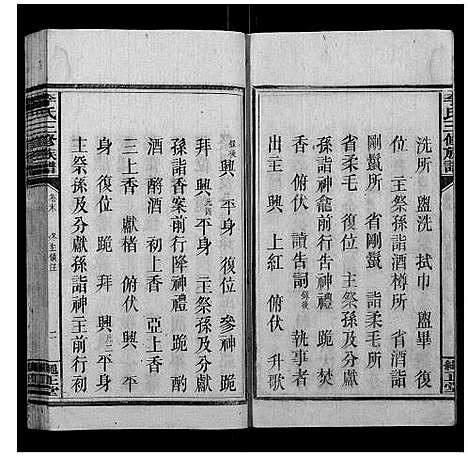 李氏三修族譜
洗所 盥洗 拭巾 盥畢 復
位 主祭孫詣酒樽所 省酒詣
剛鬣所 省剛鬣 詣柔毛所
省柔毛 復位 主祭孫及分獻
孫詣神龕前行告神禮 跪 上
香 俯伏 讀告詞錄後 執事者
出主 興 上紅 俯伏 升歌
錄後 興 平身 復位 參神 跪
拜 興 平身 主祭孫及分獻
孫詣香案前行降神禮 跪 酌
酒 酹酒 初上香 亞上香
三上香 獻楮 俯伏 興 平
身 復位 跪 拜 興 平身
主祭孫及分獻孫詣神主前行初
李氏三修族譜
卷末